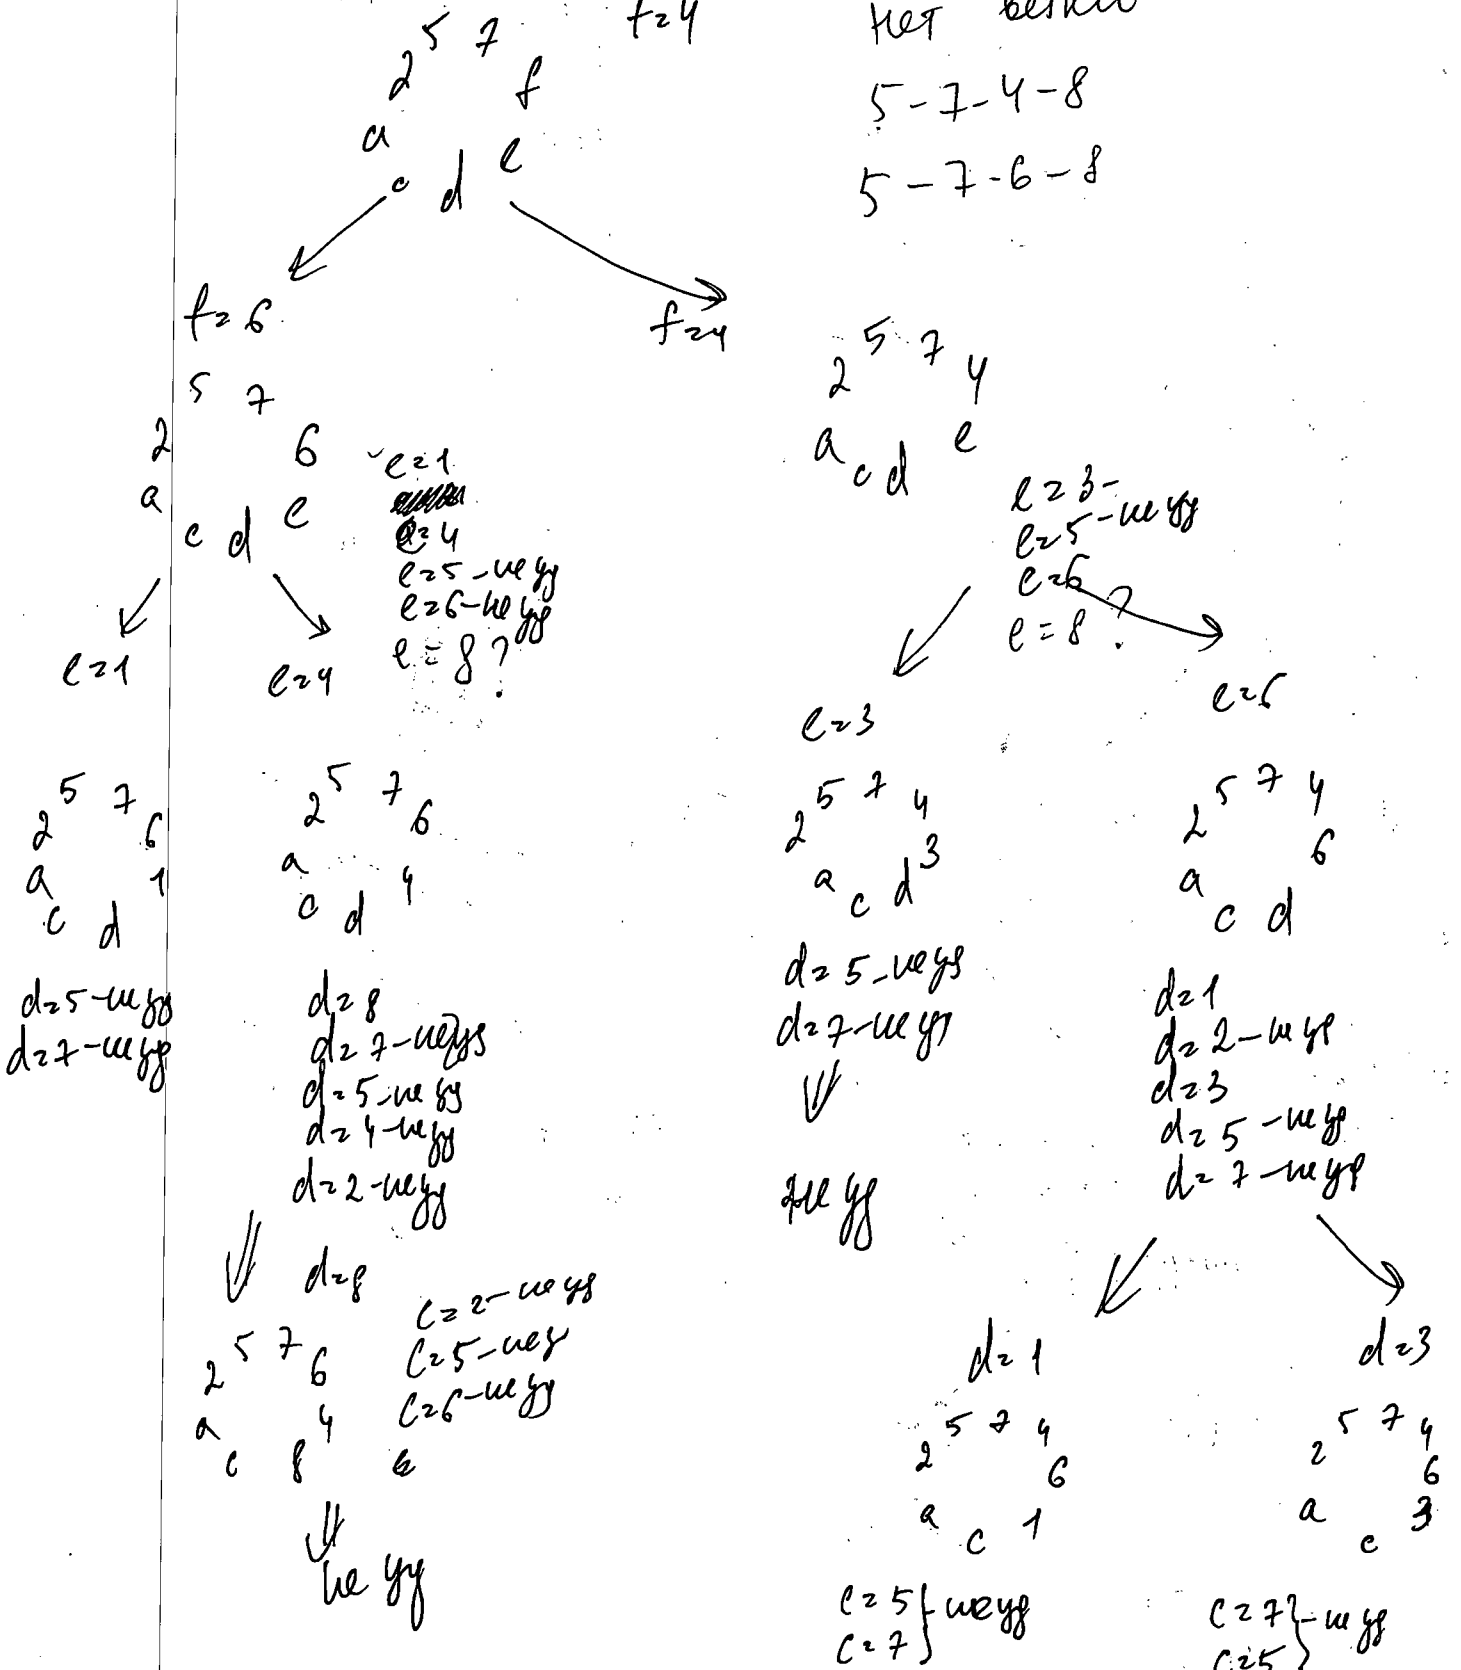 f=4
нет ветки
5 7
2 f
a e
c d
5-7-4-8
5-7-6-8
f=6
f=4
5 7
2 6
a e
c d
e=1
e=4
e=5-не уд
e=6-не уд
e=8?
5 7
2 4
a e
c d
e=3-
e=5-не уд
e=6
e=8?
e=1
e=4
e=3
e=6
5 7
2 6
a 1
c d
d=5-не уд
d=7-не уд
5 7
2 6
a 4
c d
d=8
d=7-не уд
d=5-не уд
d=4-не уд
d=2-не уд
d=8
5 7
2 6
a 4
c 8
c=2-не уд
c=5-не уд
c=6-не уд
не уд
5 7
2 4
a 3
c d
d=5-не уд
d=7-не уд
не уд
5 7
2 4
a 6
c d
d=1
d=2-не уд
d=3
d=5-не уд
d=7-не уд
d=1
d=3
5 7 4
2 6
a 1
c
c=5
c=7 }-не уд
5 7 4
2 6
a 3
c
c=7
c=5 }-не уд